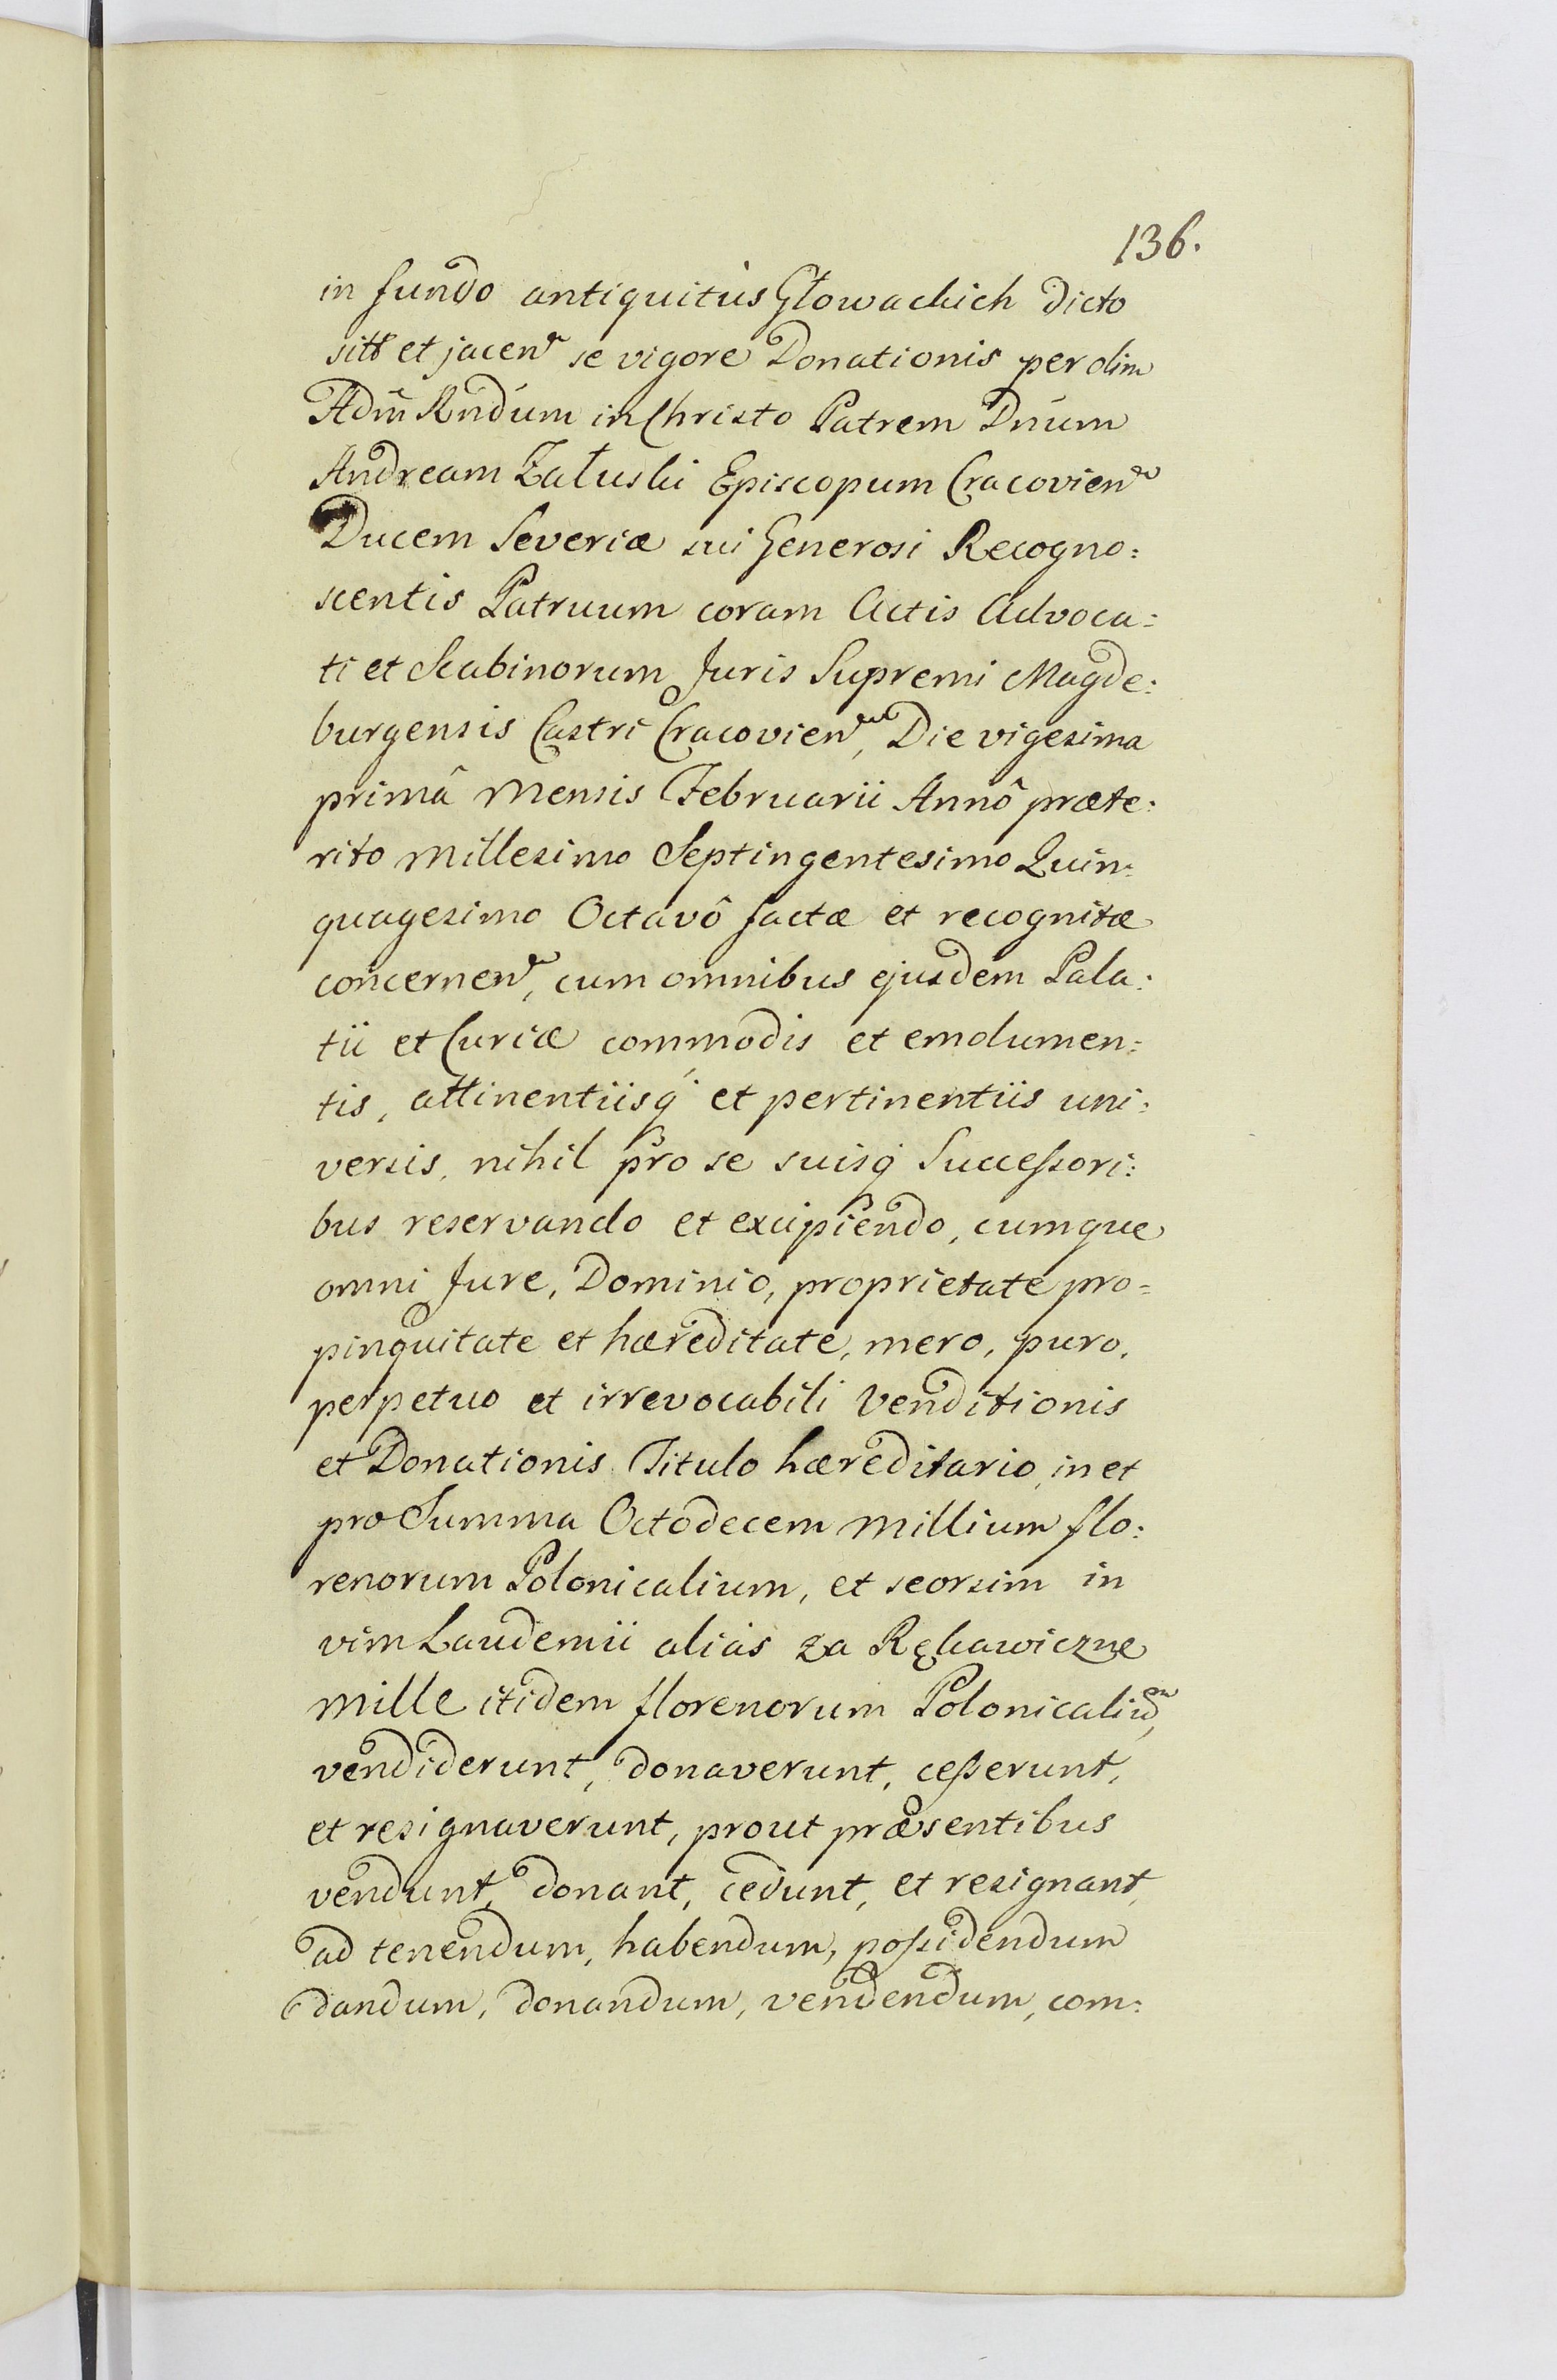 136.
in fundo antiquitùs Głowackich dicto
sitt et jacen se vigore Donationis per olim
Adm̄ Rndūm in Christo Patrem Dnūm
Andream Załuski Episcopum Cracovien
Ducem Severiæ sui Generosi Recogno:
scentis Patruum coram Actis Advoca:
ti et Scabinorum Juris Supremi Magde:
burgensis Castri Cracovien, Die vigesima
primâ Mensis Februarii Annô præte:
rito Millesimo Septingentesimo Quin:
quagesimo Octavô factæ et recognitæ
concernen, cum omnibus ejusdem Pala:
tii et Curiæ commodis et emolumen:
tis, attinentiisq́ et pertinentiis uni:
versis, nihil pro se suisq́ Successori:
bus reservando et excipiendo, cumque
omni Jure, Dominio, proprietate pro=
pinquitate et hæreditate, mero, puro,
perpetuo et irrevocabili Venditionis
et Donationis Titulo hæreditario, in et
pro Summa Octodecem Millium flo:
renorum Polonicalium, et seorsim in
vim Laudemii aliàs za Rękawiczne
Mille itidem florenorum Polonicaliū,
vendiderunt, donaverunt, cesserunt,
et resignaverunt, prout præsentibus
vendunt, donant, cedunt, et resignant,
ad tenendum, habendum, possidendum
dandum, donandum, vendendum, com: